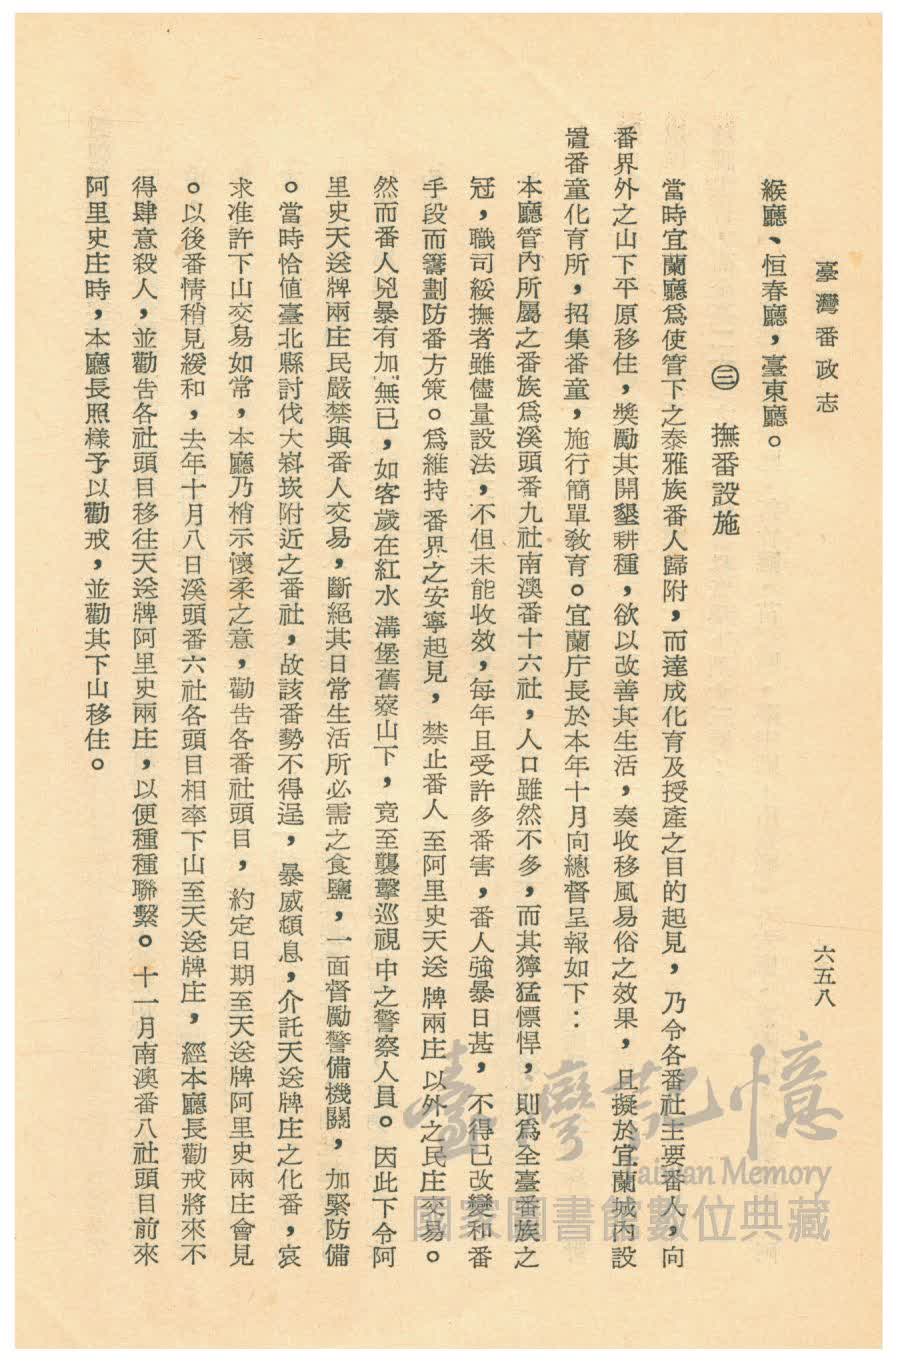 臺灣番政志
六五八
緱廳、恒春廳，臺東廳。
㊂ 撫番設施
當時宜蘭廳爲使管下之泰雅族番人歸附，而達成化育及授產之目的起見，乃令各番社主要番人，向
番界外之山下平原移住，獎勵其開墾耕種，欲以改善其生活，奏收移風易俗之效果，且擬於宜蘭城內設
置番童化育所，招集番童，施行簡單教育。宜蘭庁長於本年十月向總督呈報如下：
本廳管內所屬之番族爲溪頭番九社南澳番十六社，人口雖然不多，而其獰猛慓悍，則爲全臺番族之
冠，職司綏撫者雖儘量設法，不但未能收效，每年且受許多番害，番人強暴日甚，不得已改變和番
手段而籌劃防番方策。爲維持番界之安寧起見，禁止番人至阿里史天送牌兩庄以外之民庄交易。
然而番人兇暴有加無已，如客歲在紅水溝堡舊藔山下，竟至襲擊巡視中之警察人員。因此下令阿
里史天送牌兩庄民嚴禁與番人交易，斷絕其日常生活所必需之食鹽，一面督勵警備機關，加緊防備
。當時恰值臺北縣討伐大嵙崁附近之番社，故該番勢不得逞，暴威頹息，介託天送牌庄之化番，哀
求准許下山交易如常，本廳乃梢示懷柔之意，勸告各番社頭目，約定日期至天送牌阿里史兩庄會見
。以後番情稍見緩和，去年十月八日溪頭番六社各頭目相率下山至天送牌庄，經本廳長勸戒將來不
得肆意殺人，並勸告各社頭目移往天送牌阿里史兩庄，以便種種聯繫。十一月南澳番八社頭目前來
阿里史庄時，本廳長照樣予以勸戒，並勸其下山移住。
臺灣記憶
Taiwan Memory
國家圖書館數位典藏